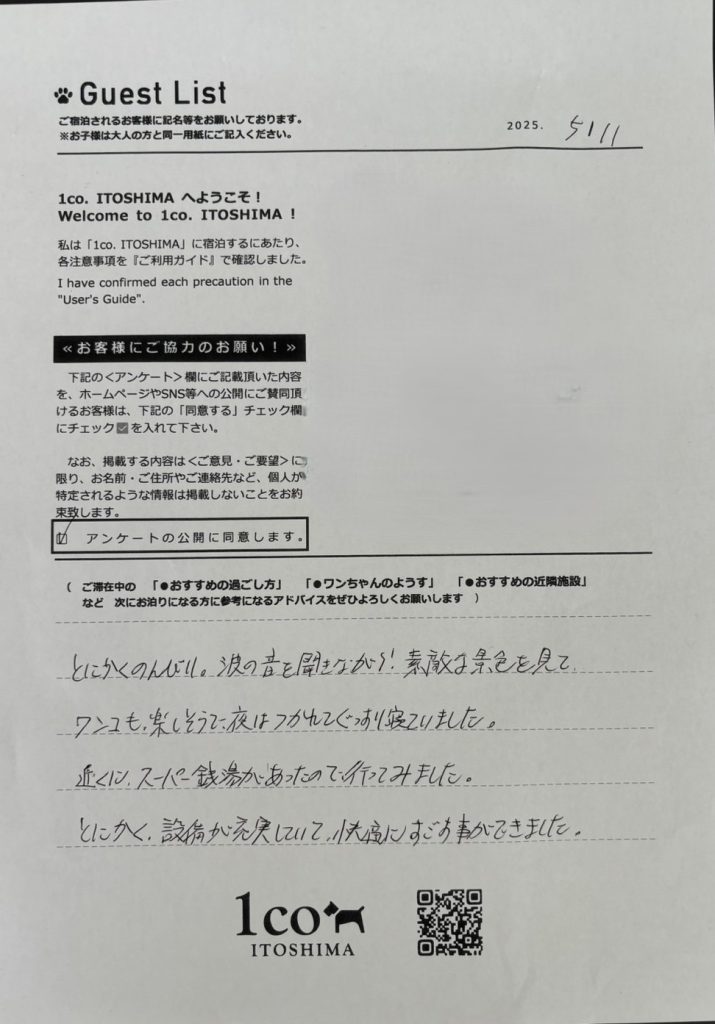 Guest List
ご宿泊されるお客様に記名等をお願いしております。
※お子様は大人の方と同一用紙にご記入ください。
2025. 5/11
1co. ITOSHIMA へようこそ！
Welcome to 1co. ITOSHIMA !
私は「1co. ITOSHIMA」に宿泊するにあたり、
各注意事項を『ご利用ガイド』で確認しました。
I have confirmed each precaution in the
"User's Guide".
≪お客様にご協力のお願い！≫
下記の＜アンケート＞欄にご記載頂いた内容
を、ホームページやSNS等への公開にご賛同頂
けるお客様は、下記の「同意する」チェック欄
にチェック☑を入れて下さい。
なお、掲載する内容は＜ご意見・ご要望＞に
限り、お名前・ご住所やご連絡先など、個人が
特定されるような情報は掲載しないことをお約
束致します。
☑ アンケートの公開に同意します。
（ ご滞在中の 「●おすすめの過ごし方」 「●ワンちゃんのようす」 「●おすすめの近隣施設」
など 次にお泊りになる方に参考になるアドバイスをぜひよろしくお願いします ）
とにかくのんびり。波の音を聞きながら！素敵な景色を見て、
ワンコも、楽しそうで、夜はつかれてぐっすり寝ていました。
近くに、スーパー銭湯があったので行ってみました。
とにかく、設備が充実していて、快適にすごす事ができました。
1co
ITOSHIMA